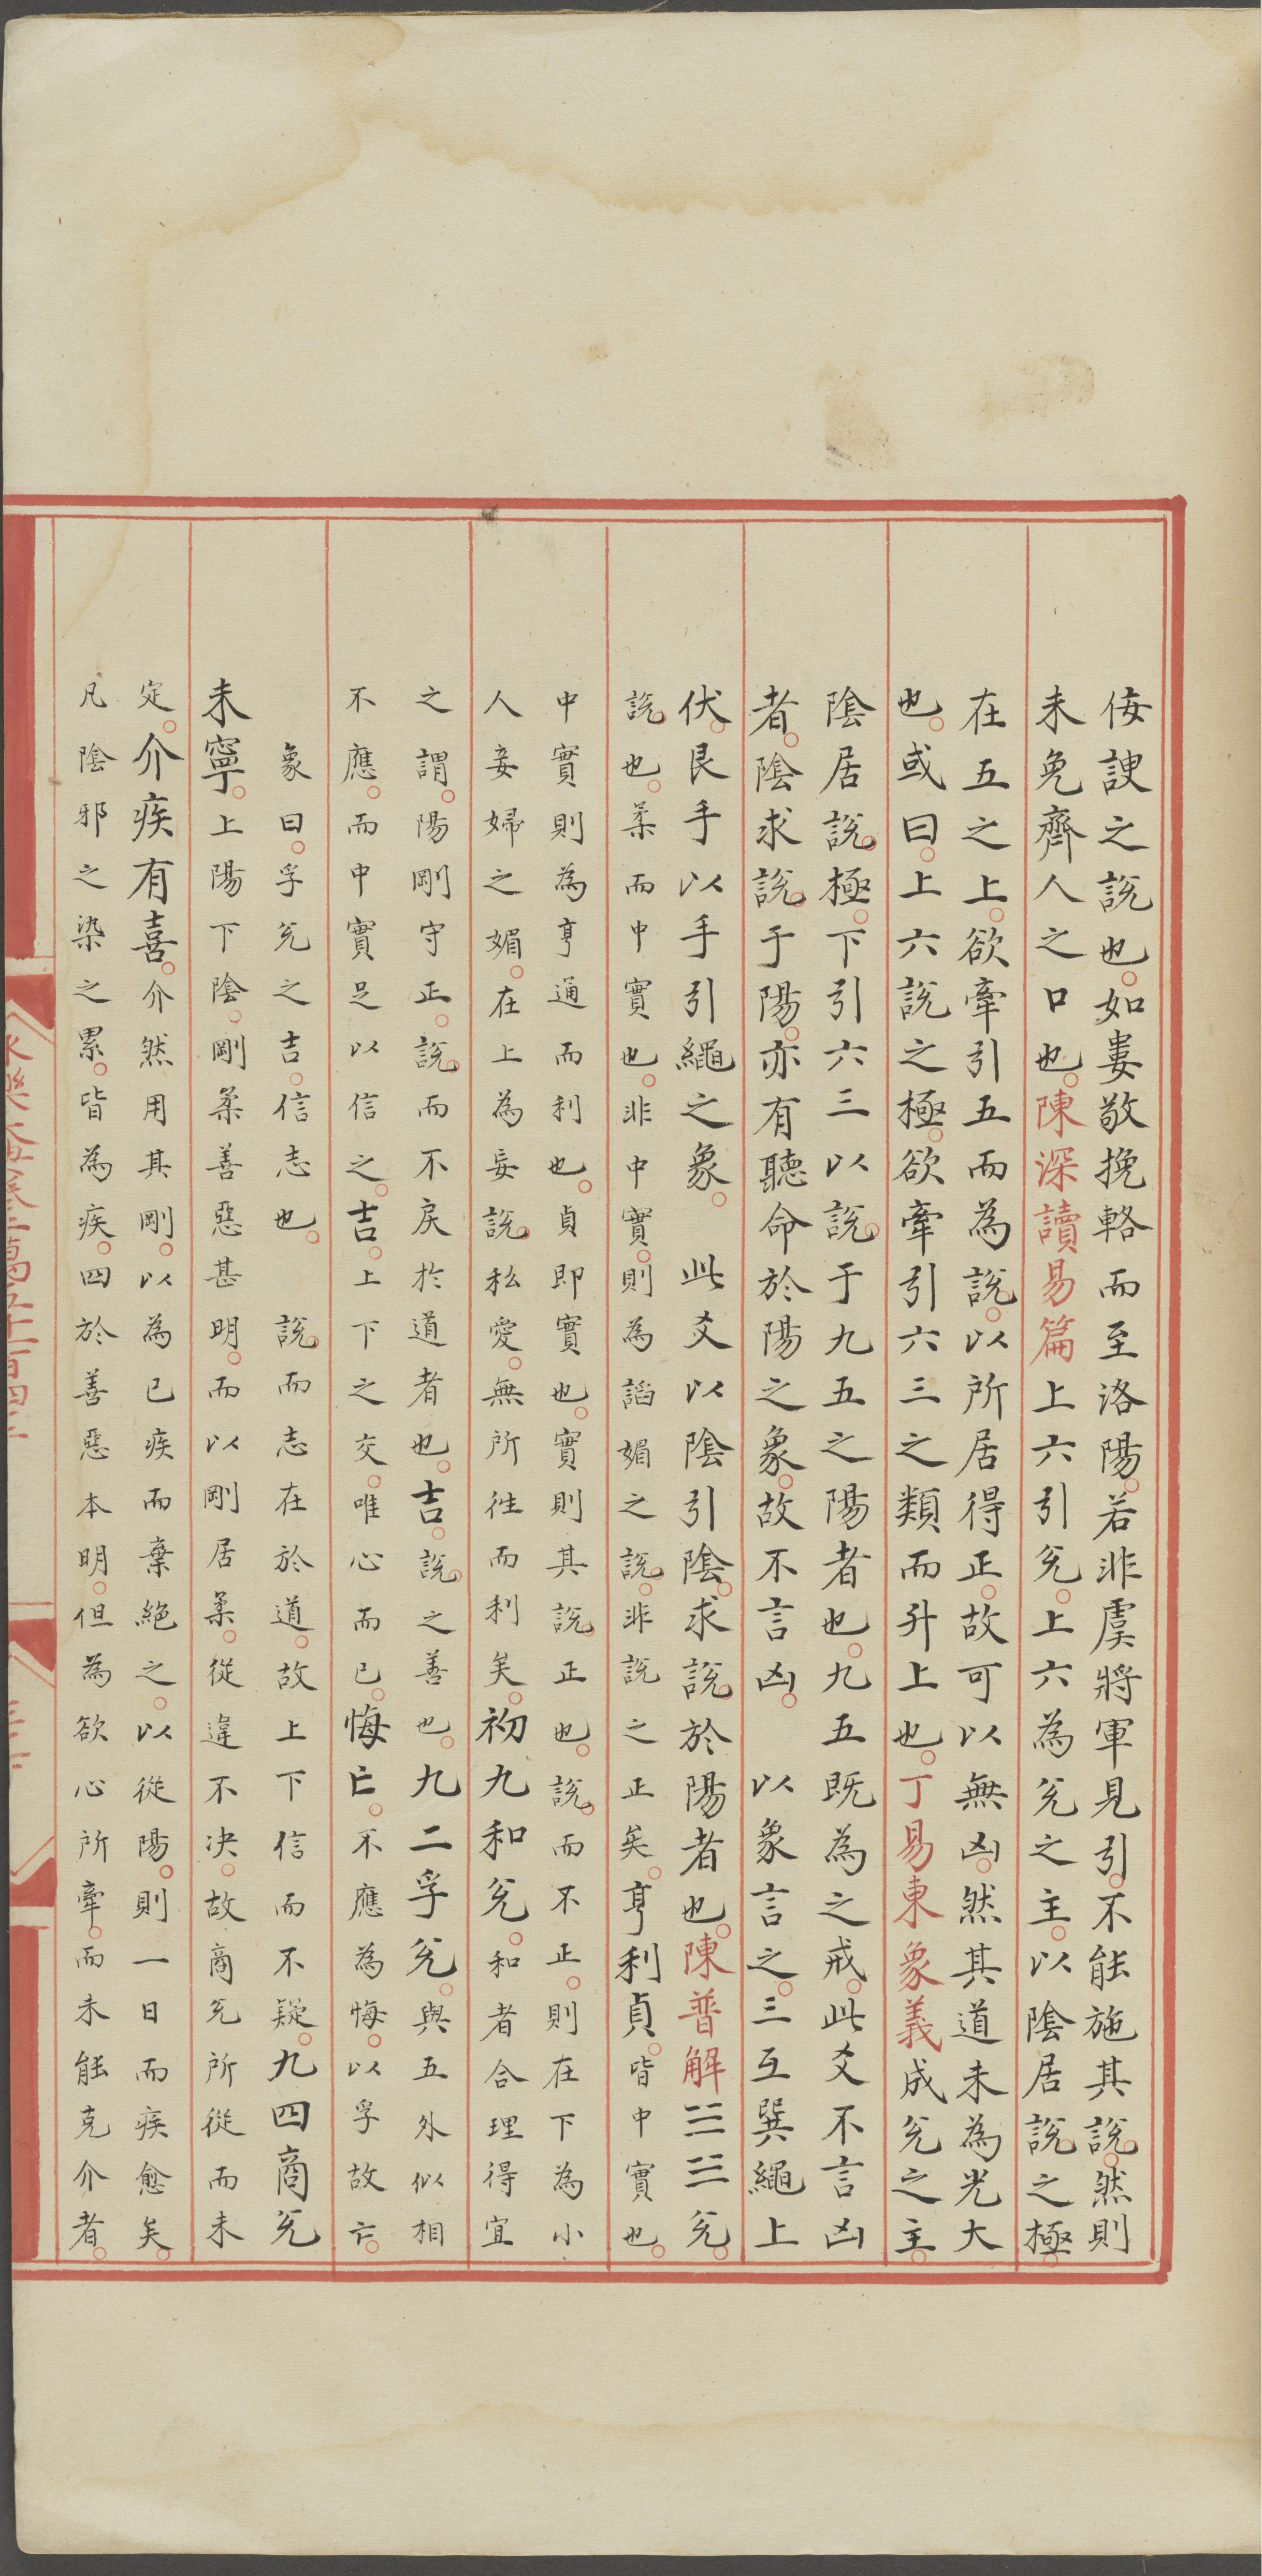 侫諛之說也如婁敬挽輅而至洛陽若非虞將軍見引不能施其說然則
未免齊人之口也陳深讀易篇上六引兊上六為兊之主以陰居說之極
在五之上欲牽引五而為說以所居得正故可以無凶然其道未為光大
也或曰上六說之極欲牽引六三之類而升上也丁易東象義成兊之主
陰居說極下引六三以說于九五之陽者也九五既為之戒此爻不言凶
者陰求說于陽亦有聽命於陽之象故不言凶　以象言之三互巽繩上
伏艮手以手引繩之象　此爻以陰引陰求說於陽者也陳普解☱☱兊
說也柔而中實也非中實則為謟媚之說非說之正矣亨利貞皆中實也
中實則為亨通而利也貞即實也實則其說正也說而不正則在下為小
人妾婦之媚在上為妄說私愛無所徃而利矣初九和兊和者合理得宜
之謂陽剛守正說而不戾於道者也吉說之善也九二孚兊與五外似相
不應而中實足以信之吉上下之交唯心而已悔亡不應為悔以孚故亡
象曰孚兊之吉信志也　說而志在於道故上下信而不疑九四商兊
未寧上陽下陰剛柔善惡甚明而以剛居柔從違不決故商兊所從而未
定介疾有喜介然用其剛以為已疾而棄絕之以從陽則一日而疾愈矣
凡陰邪之染之累皆為疾四於善惡本明但為欲心所牽而未能克介者